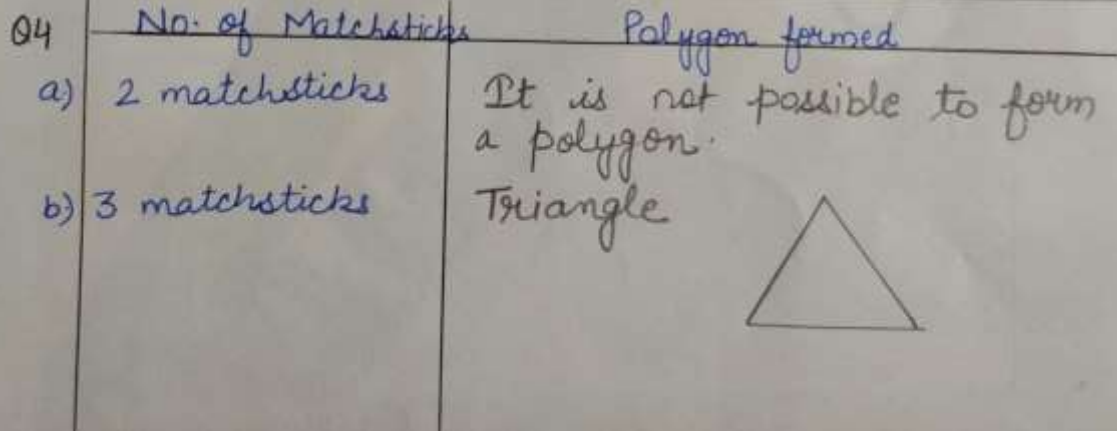 Q4 No. of Matchsticks Polygon formed
a) 2 matchsticks It is not possible to form
a polygon.
b) 3 matchsticks Triangle